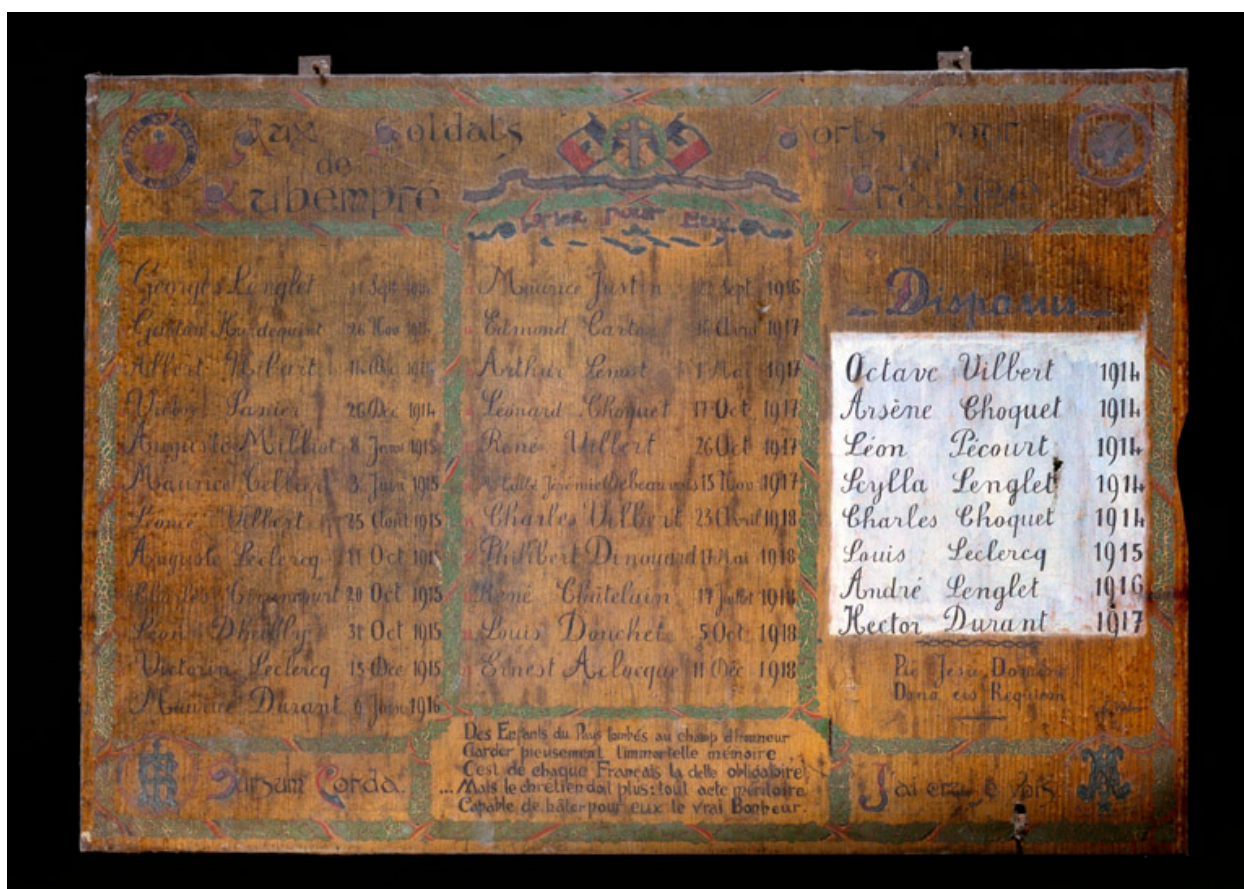 Aux Soldats
de
Rubempré
Morts pour
la
France
Prier pour Eux
Georges Lenglet Sept
Gaston 26 Nov
Albert Hibart Déc
Sanier 26 Déc 1914
Auguste Milliot 8 Janv 1915
Maurice 3 Juin 1915
Léonce Vilbert 25 Août 1915
Auguste Leclercq 11 Oct 1915
Charles 20 Oct 1915
Léon Dheilly 31 Oct 1915
Victorin Leclercq 15 Déc 1915
Maurice Durant 6 1916
Maurice Justin 22 Sept 1916
Edmond Carton 16 Avril 1917
Arthur Lenoir 1 Mai 1917
Léonard Choquet 17 Oct 1917
René Vilbert 26 Oct 1917
Jérémie Debeauvais 15 Nov 1917
Charles Vilbert 23 Avril 1918
Philibert Dinoyard 17 Mai 1918
René Châtelain 17 Juillet 1918
Louis Douchet 5 Oct 1918
Ernest Acloeque 11 Déc 1918
Disparus
Octave Vilbert 1914
Arsène Choquet 1914
Léon Pécourt 1914
Scylla Lenglet 1914
Charles Choquet 1914
Louis Leclercq 1915
André Lenglet 1916
Hector Durant 1917
Pie Jesu Domine
Dona eis Requiem
Sursum Corda.
Des Enfants du Pays tombés au champ d'honneur
Garder pieusement l'immortelle mémoire
C'est de chaque Français la dette obligatoire,
... Mais le chrétien doit plus: tout acte méritoire
Capable de hâter pour eux le vrai Bonheur.
J'ai cru je vois